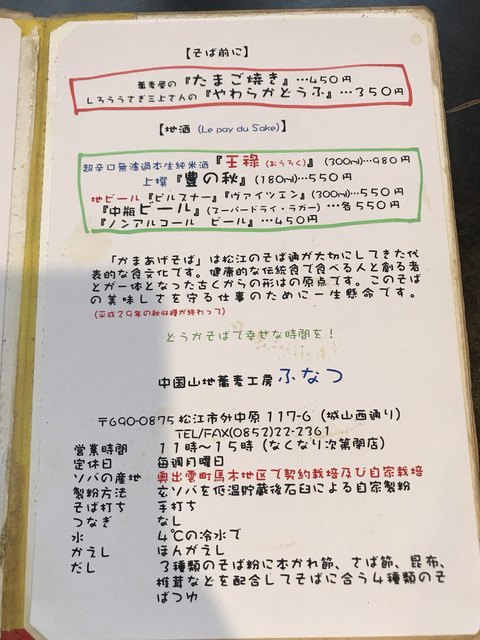 【そば前に】
蕎麦屋の『たまご焼き』…450円
しろううさぎ三上さんの『やわらかどうふ』…350円
【地酒 (Le pay du Sake)】
超辛口無濾過本生純米酒『王祿(おうろく)』(300ml)…980円
上撰『豊の秋』(180ml)…550円
地ビール『ピルスナー』『ヴァイツェン』(300ml)…550円
『中瓶ビール』(スーパードライ・ラガー)…各550円
『ノンアルコール ビール』…450円
「かまあげそば」は松江のそば通が大切にしてきた代
表的な食文化です。健康的な伝統食で食べる人と創る者
とが一体となった古くからの形はの原点です。このそば
の美味しさを守る仕事のために一生懸命です。
(平成29年の秋収穫が終わって)
どうかそばで幸せな時間を!
中国山地蕎麦工房ふなつ
〒690-0875 松江市外中原117-6(城山西通り)
TEL/FAX(0852)22-2361
営業時間 11時~15時(なくなり次第閉店)
定休日 毎週月曜日
ソバの産地 奥出雲町馬木地区で契約栽培及び自家栽培
製粉方法 玄ソバを低温貯蔵後石臼による自家製粉
そば打ち 手打ち
つなぎ なし
水 4℃の冷水で
かえし ほんがえし
だし 3種類のそば粉に本かれ節、さば節、昆布、
椎茸などを配合してそばに合う4種類のそ
ばつゆ